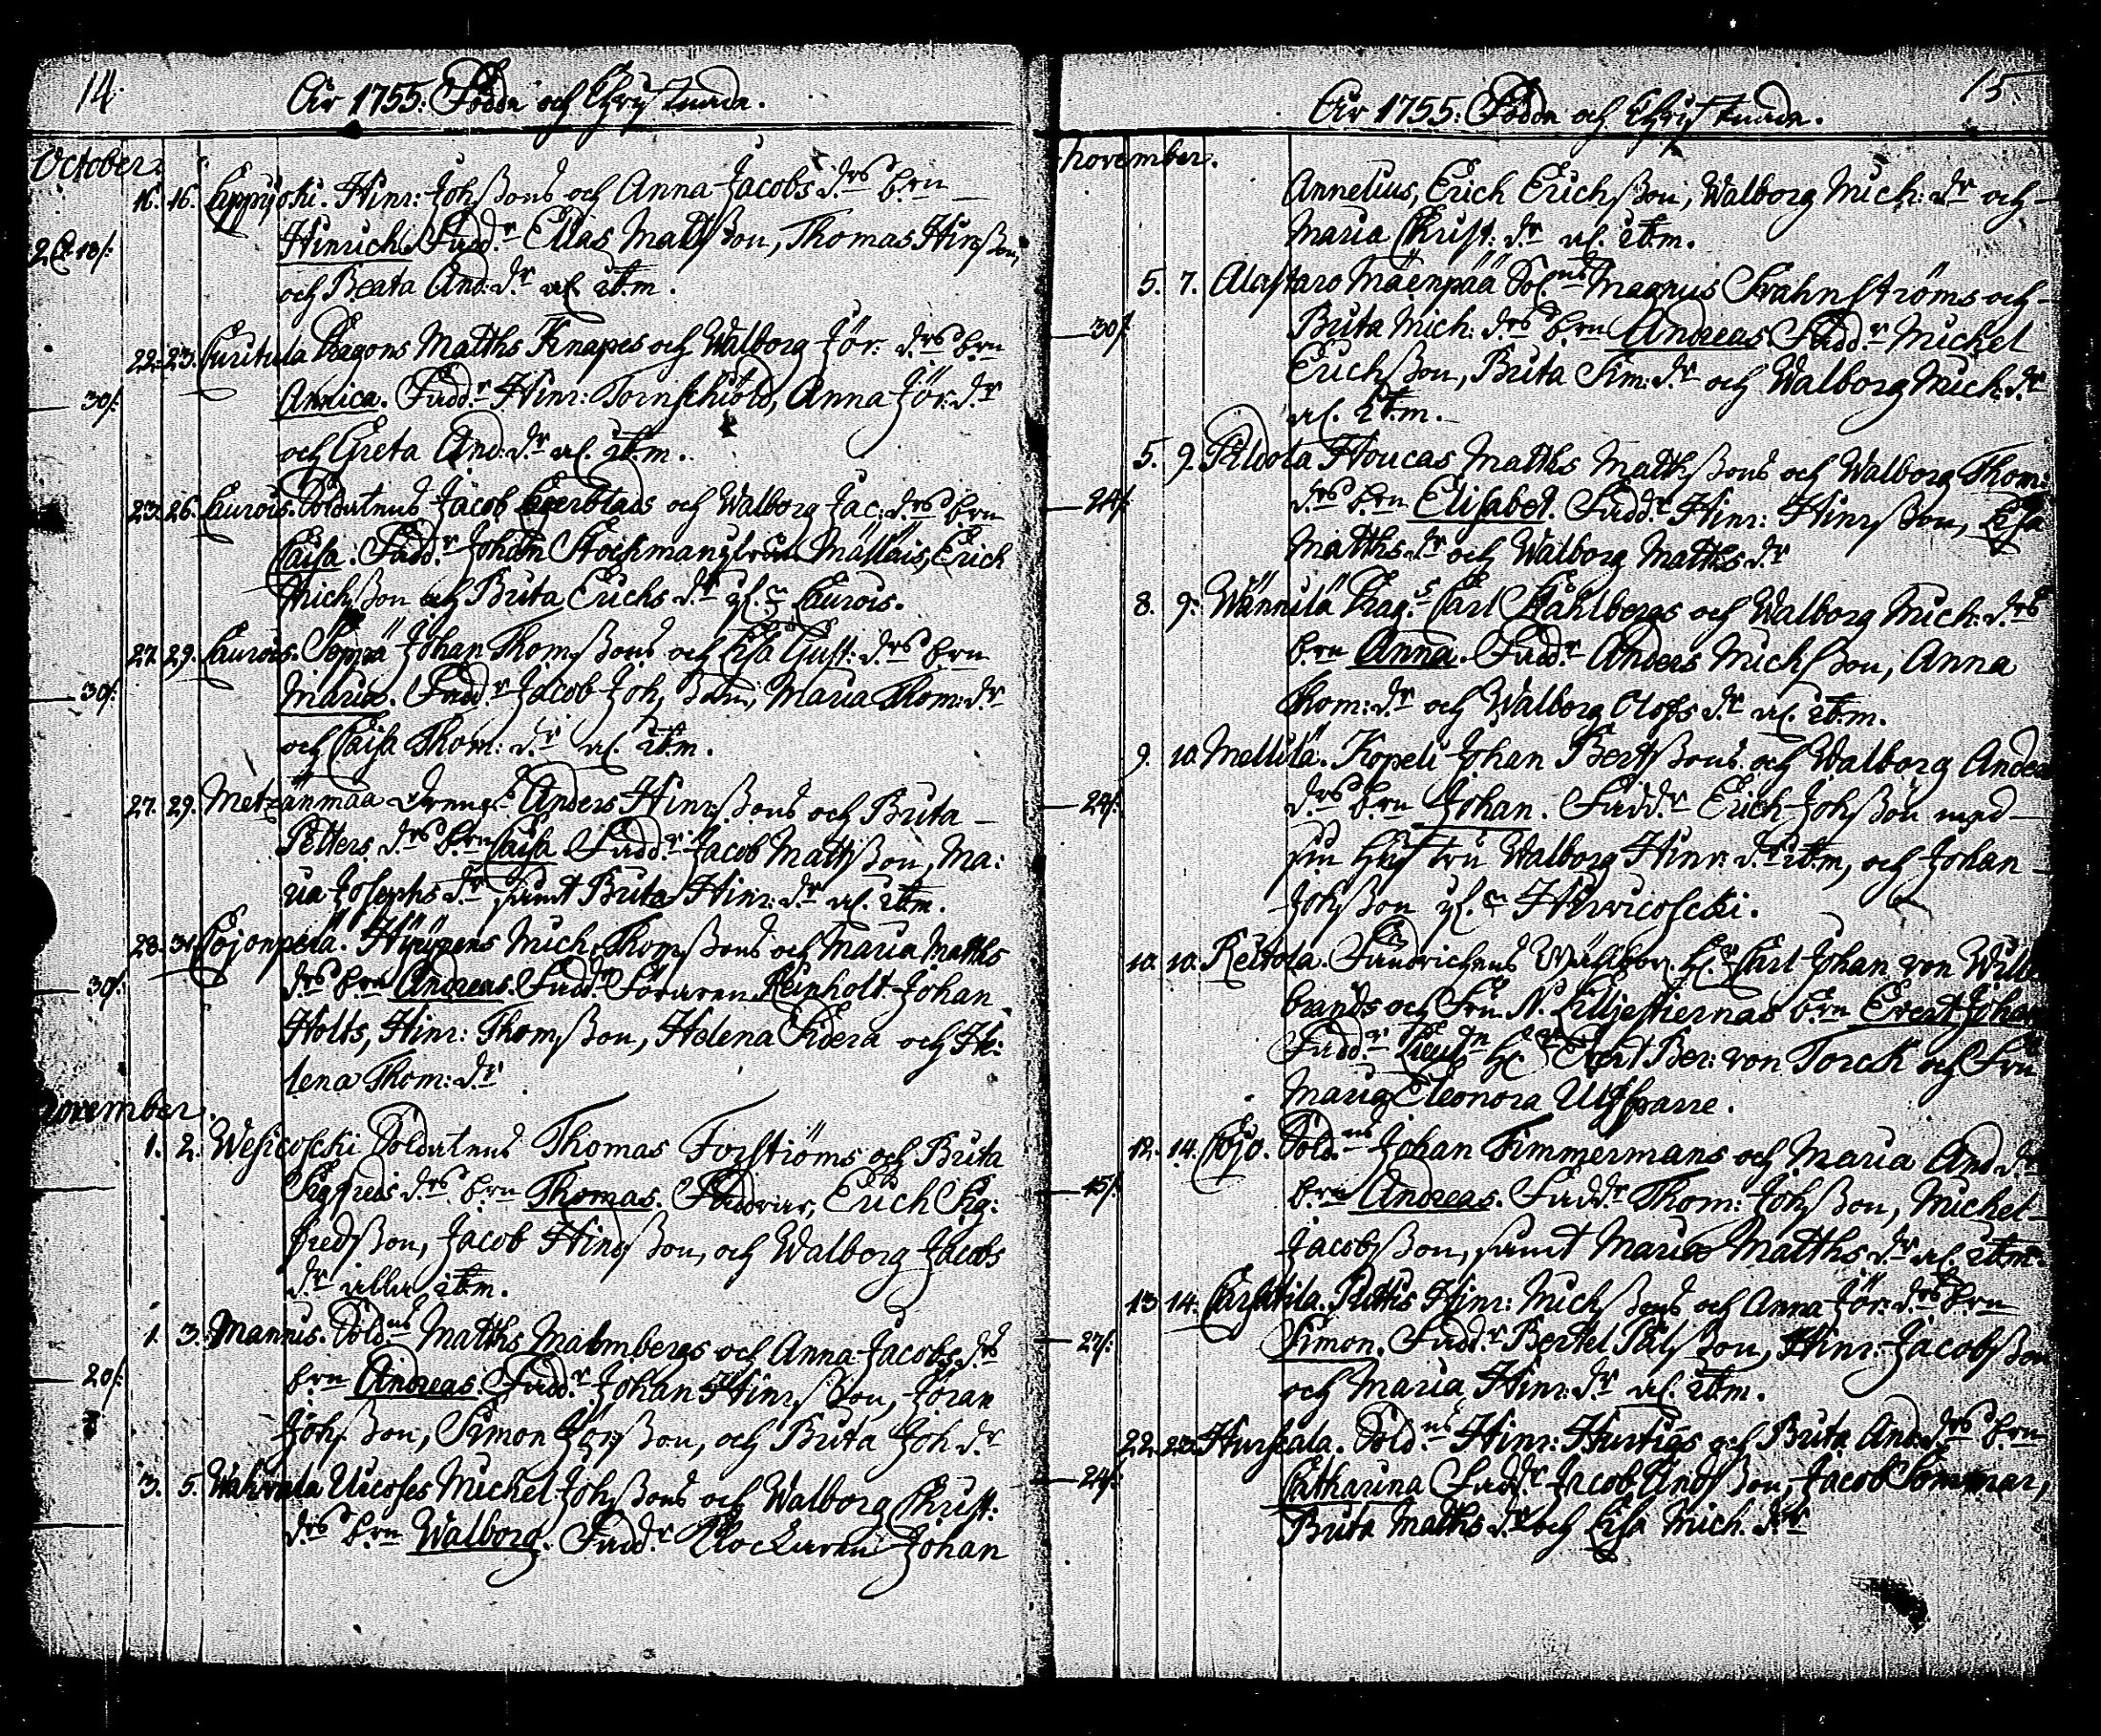 14.
Åhr 1755: Födde och Christnade.
October.
16. 16. Cuppjoki. Hinr: Johssons och Anna Jacobs drs brn
Hinrich. Fadd:r Elias Mattsson, Thomas Hinrsson,
2 Cr 18/:
och Beata And: dr al. ibm.
22. 23. Curitula Dragons Matths Knapes och Walborg Jör: drs brn
30/:
Annica. Fadd:r Hinr: Tornschiöld, Anna Jör: dr
och Greta And: dr al. ibm.
23. 26. Laurois. Soldatens Jacob Egerblads och Walborg Jac: drs brn
Caisa. Fadd:r Johan Erich
Michsson och Brita Erichs dr Laurois.
27. 29. Laurois. Johan Thomssons och Lisa Gust: drs brn
30/:
Maria. Fadd:r Jacob Johsson, Maria Thom: dr
och Caisa Thom: dr al. ibm.
27. 29. Metzänmaa Drengs Anders Hinrssons och Brita
Petters drs brn Caisa. Fadd:r Jacob Mattsson, Ma:
ria Josephs dr samt Brita Hinr: dr al. ibm.
28. 31. Cojonperä. Hyrypens Mich: Thomssons och Maria Matths
30/:
drs brn Andreas. Fadd:r Reinholt Johan
Holts, Hinr: Thomsson, Helena Fidera och He:
lena Thom: dr
November.
1. 2. Wesicoscki Soldatens Thomas Forströms och Brita
Sigfreds drs brn Thomas. Faddrar, Erich Sig:
fredsson, Jacob Hindsson, och Walborg Jacobs
dr alla ibm.
1. 3. Mannis. Sold:ns Matths Malmbergs och Anna Jacobs drs
20/:
brn Andreas. Fadd:r Johan Hinrsson, Jöran
Johsson, Simon Jörsson, och Brita Joh: dr
3. 5. Wahvala Uicoses Michel Johssons och Walborg Christ:
drs brn Walborg. Fadd:r Klockaren Johan
15.
Åhr 1755: Födde och Christnade.
November.
Annelius, Erich Erichsson, Walborg Mich: dr och
Maria Christ: dr al. ibm.
5. 7. Alastaro Mäenpää Sol:ns Magnus Svahnströms och
30/:
Brita Mich: drs brn Andreas. Fadd:r Michel
Erichsson, Brita Sim: dr och Walborg Mich: dr
al. ibm.
5. 9. Pildola Houcas Matths Mattssons och Walborg Thom:
24/:
drs brn Elisabet. Fadd:r Hinr: Hinrsson, Lisa
Matths dr och Walborg Matths dr
8. 9. Wännilä Drag:s Carl Stahlbergs och Walborg Mich: drs
brn Anna. Fadd:r Anders Michsson, Anna
Thom: dr och Walborg Olofs dr al. ibm.
9. 10. Mellilä. Kopeli Johan Bertssons och Walborg Anders
24/:
drs brn Johan. Fadd:r Erich Johsson med
sin hustru Walborg Hinr: dr ibm, och Johan
Johsson Hirvicoscki.
10. 10. Keitola. Fändrichens Wälbor: H:r Carl Johan von Wille
brands och Fru N. Lilljestiernas brn Evert Johan
Fadd:r Lieutn H:r Evert Ber: von Torck och Fru
Maria Eleonora Ulfsparre.
12. 14. Cojo. Sold:ns Johan Timmermans och Maria And: drs
15/:
brn Andreas. Fadd:r Thom: Johsson, Michel
Jacobsson, samt Maria Matths dr al. ibm.
13. 14. Carsatila. Pietis Hinr: Michssons och Anna Jör: drs brn
27/:
Simon. Fadd:r Bertel Pålsson, Hinr: Jacobsson
och Maria Hinr: dr al. ibm.
22. 23. Hurskala. Sold:ns Hinr: Hurtigs och Brita And: drs brn
24/:
Catharina Fadd:r Jacob Andsson, Jacob Sommar,
Brita Matths dr och Lisa Mich: dr